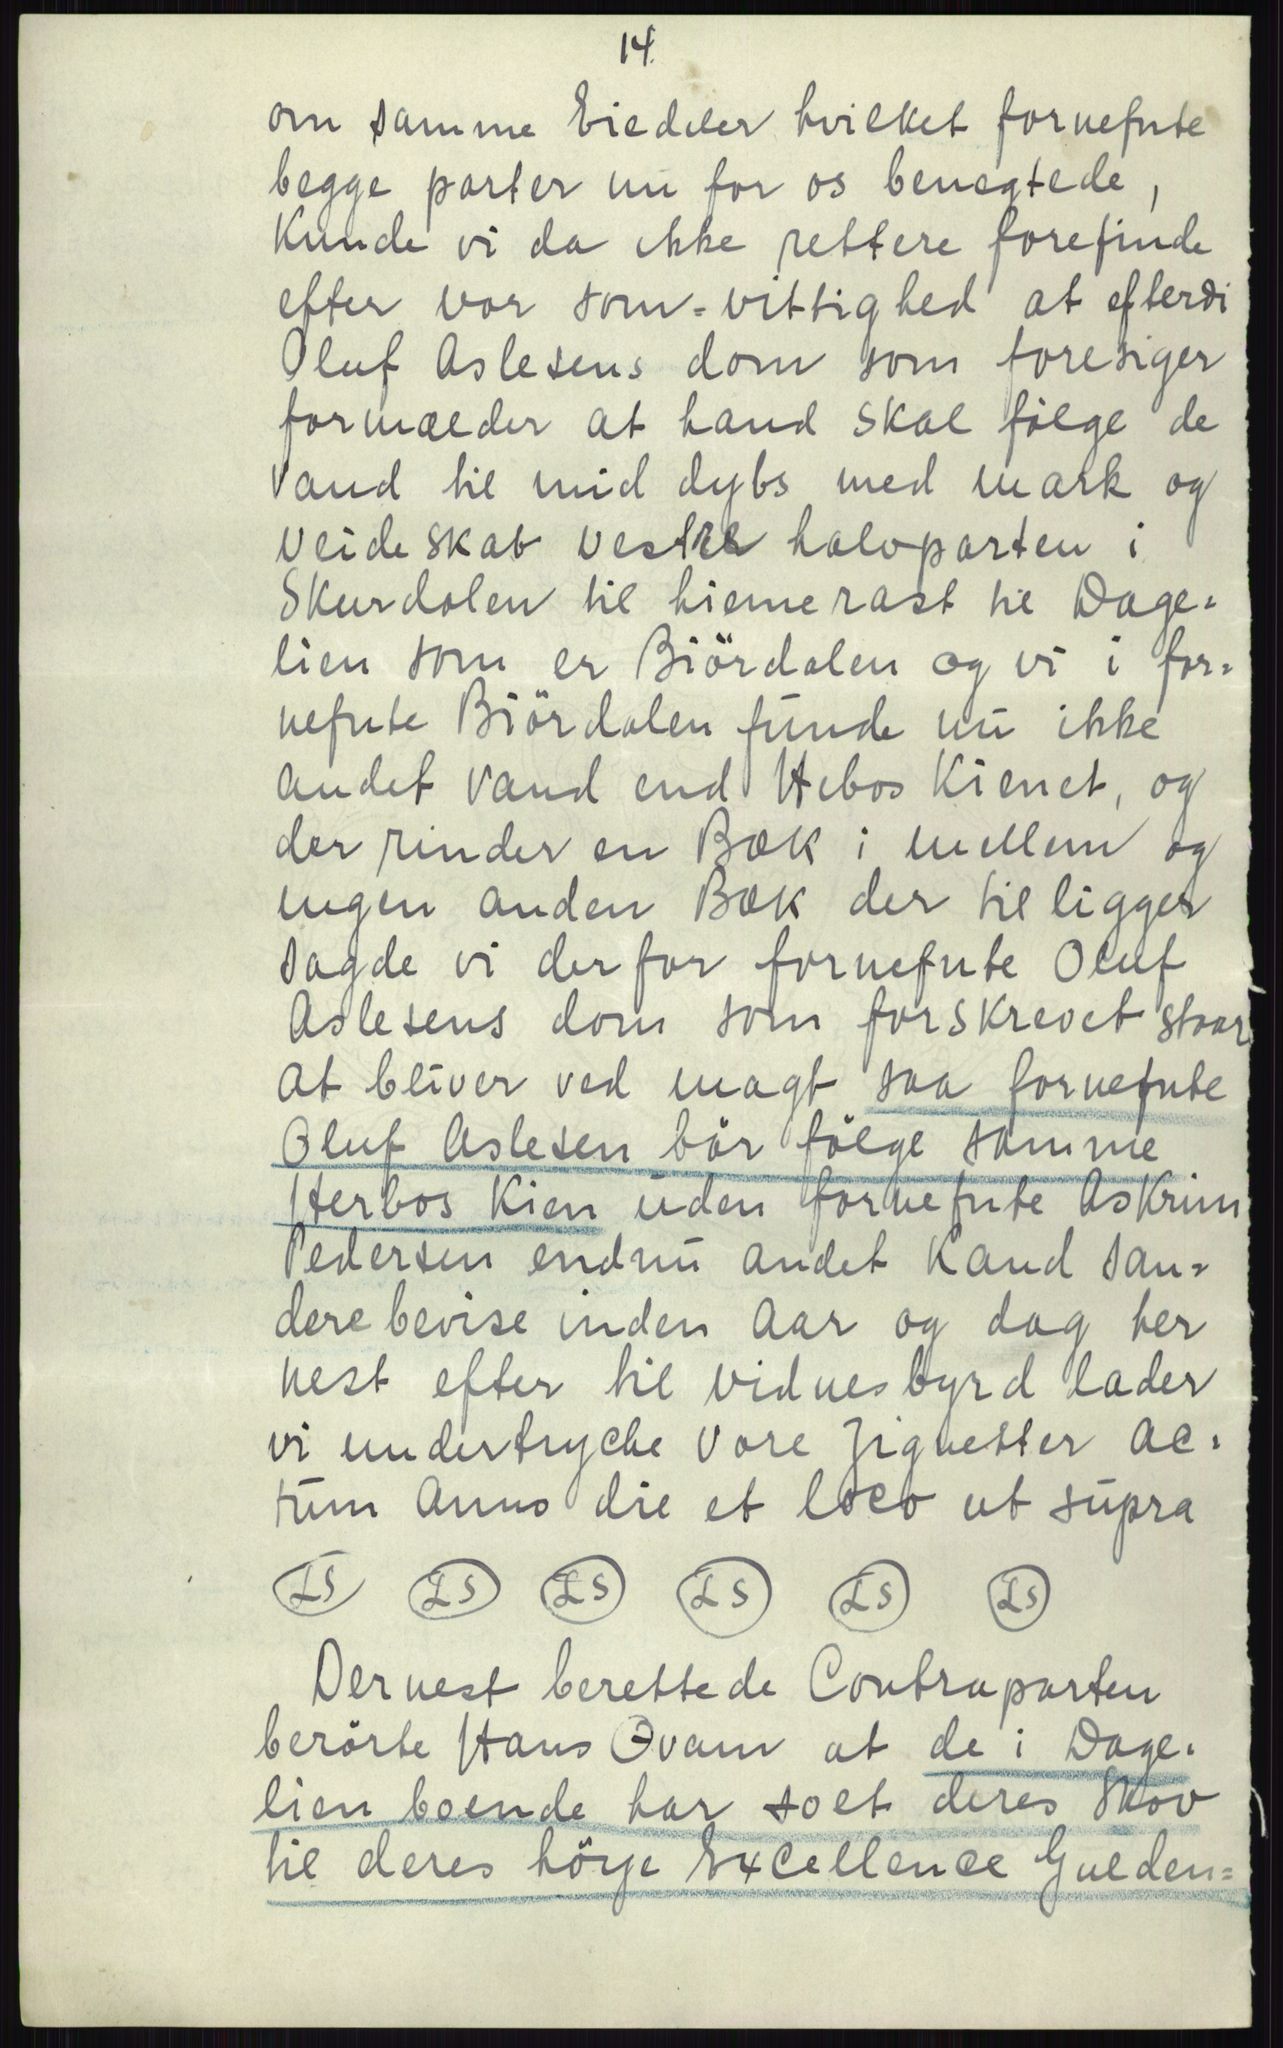 14.
om samme Eiedeler hvilket fornefnte
begge parter nu for os benegtede,
Kunde vi da ikke rettere forefinde
efter vor som-vittighed at efterdi
Oluf Aslesens dom som foresiger
formælder at hand skal fölge de
vand til mid dybs med mark og
veideskab vestre halvparten i
Skurdalen til hiemerast til Dage=
lien som er Biördalen og vi i for=
nefnte Biördalen funde nu ikke
andet vand end Hebos Kienet, og
der rinder en Bæk i mellem og
ingen anden Bæk der til ligger
sagde vi derfor fornefnte Oluf
Aslesens dom som forskrevet staar
at bliver ved magt saa fornefnte
Oluf Aslesen bör fölge samme
Herbos Kien uden fornefnte Askrim
Pedersen endnu andet Kand san=
dere bevise inden Aar og dag her
nest efter til vidnesbyrd lader
vi undertryche vore Zignetter Ac=
tum Anno die et loco ut supra
LS LS LS LS LS LS
Dernest berettede Contraparten
berörte Hans Ovam at de i Dage=
lien boende har solt deres Skov
til deres höye Excellence Gulden=